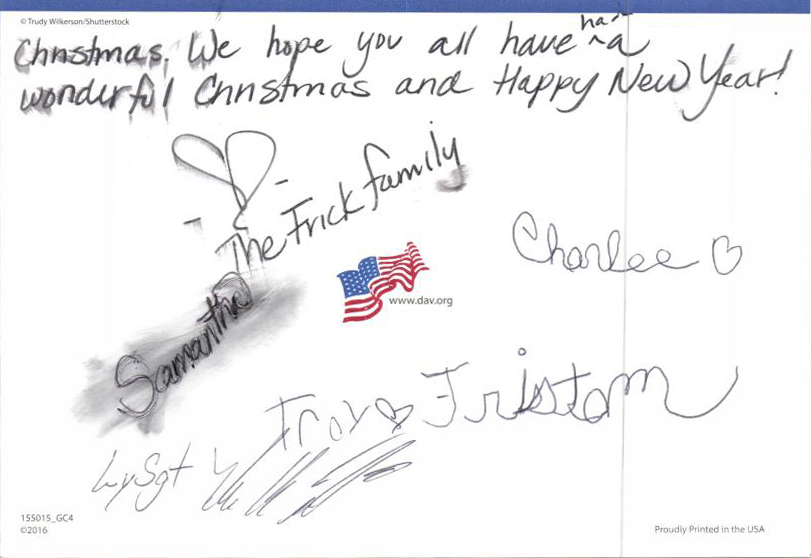 © Trudy Wilkerson/Shutterstock
Christmas. We hope you all have a
wonderful Christmas and Happy New Year!
The Frick family
Charlee
www.dav.org
Samantha
Troy
Tristam
GySgt
155015_GC4
©2016
Proudly Printed in the USA